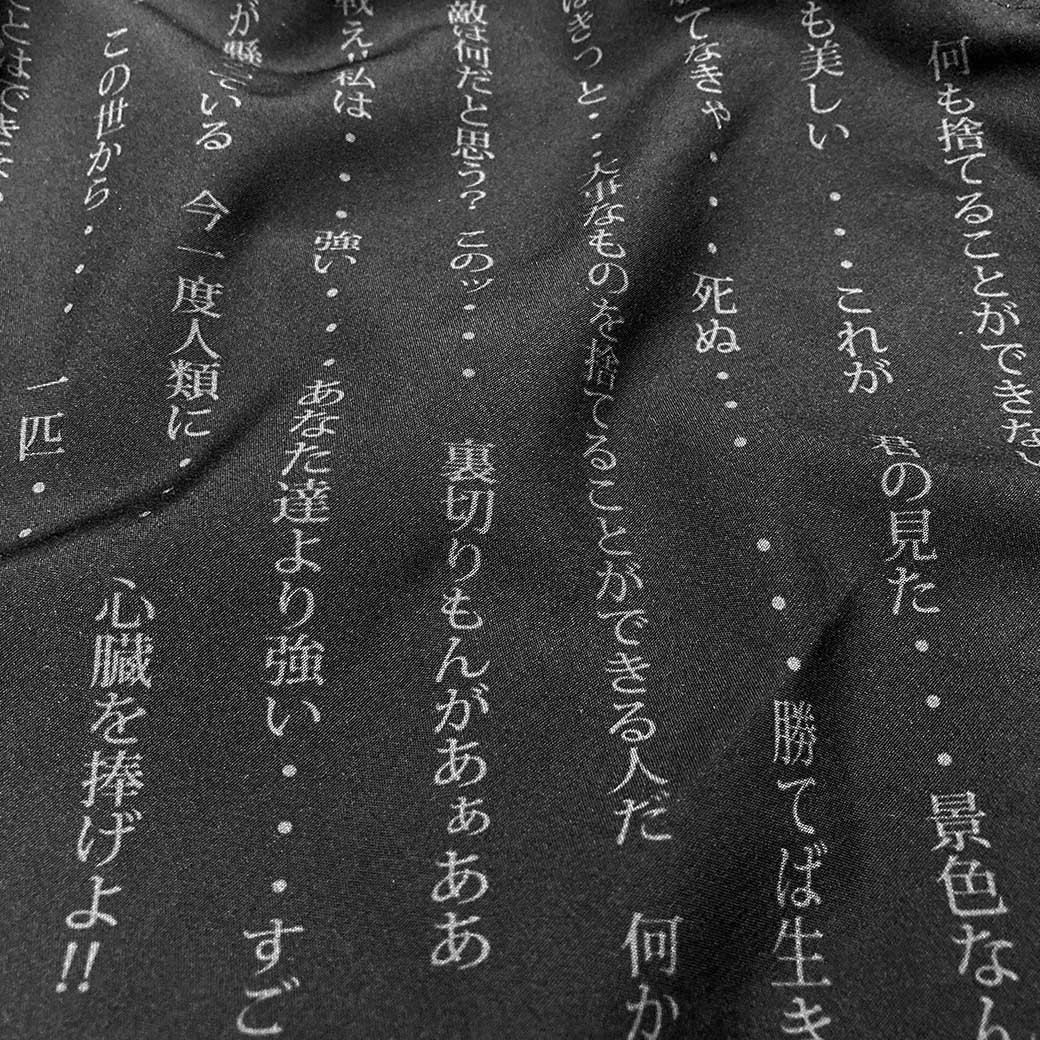 何も捨てることができな
も美しい・・・これが 君の見た・・・景色なら
てなきゃ・・・死ぬ・・・ ・・・勝てば生き
はきっと・・・大事なものを捨てることができる人だ 何か
敵は何だと思う? このッ・・・ 裏切りもんがあぁああ
戦え!!私は・・・強い・・・あなた達より強い・・・すご
が懸っている 今一度人類に・・・ 心臓を捧げよ!!
この世から・・・ 一匹・・
とはでき